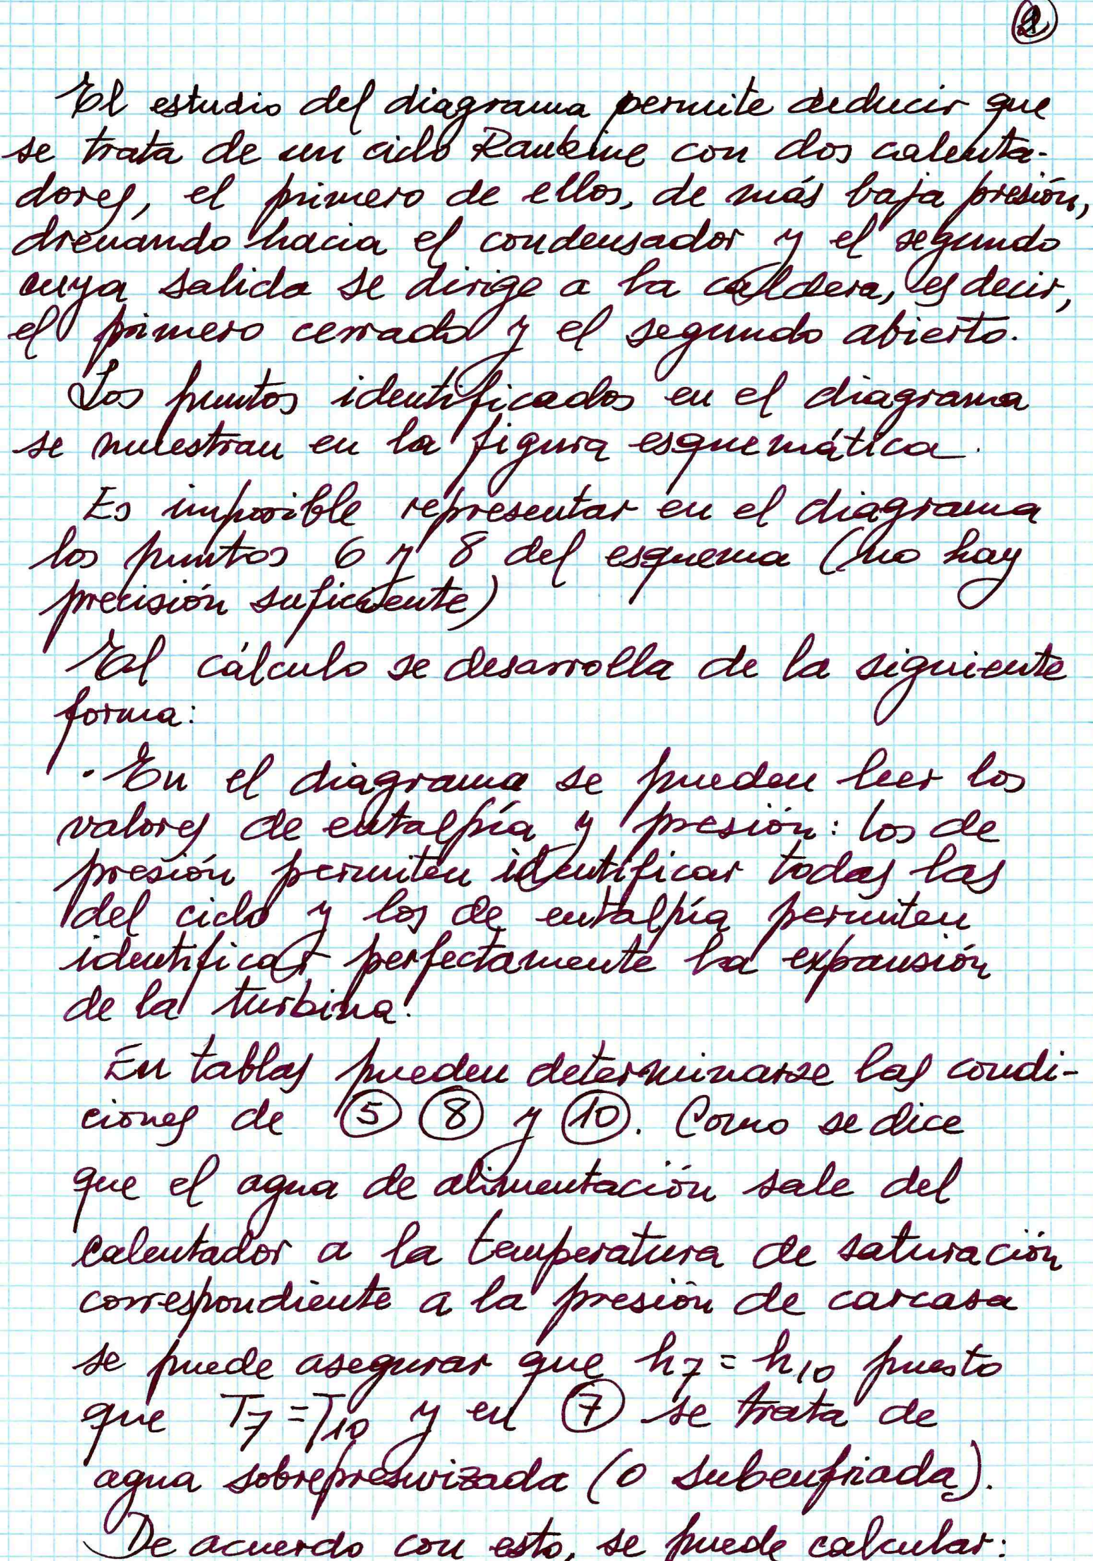 2
El estudio del diagrama permite deducir que
se trata de un ciclo Rankine con dos calenta-
dores, el primero de ellos, de más baja presión,
drenando hacia el condensador y el segundo
cuya salida se dirige a la caldera, es decir,
el primero cerrado y el segundo abierto.
Los puntos identificados en el diagrama
se muestran en la figura esquemática.
Es imposible representar en el diagrama
los puntos 6 y 8 del esquema (no hay
precisión suficiente)
El cálculo se desarrolla de la siguiente
forma:
· En el diagrama se pueden leer los
valores de entalpía y presión: los de
presión permiten identificar todas las
del ciclo y los de entalpía permiten
identificar perfectamente la expansión
de la turbina.
En tablas pueden determinarse las condi-
ciones de ⑤ ⑧ y ⑩. Como se dice
que el agua de alimentación sale del
calentador a la temperatura de saturación
correspondiente a la presión de carcasa
se puede asegurar que h₇ = h₁₀ puesto
que T₇ = T₁₀ y en ⑦ se trata de
agua sobrepresurizada (o subenfriada).
De acuerdo con esto, se puede calcular: